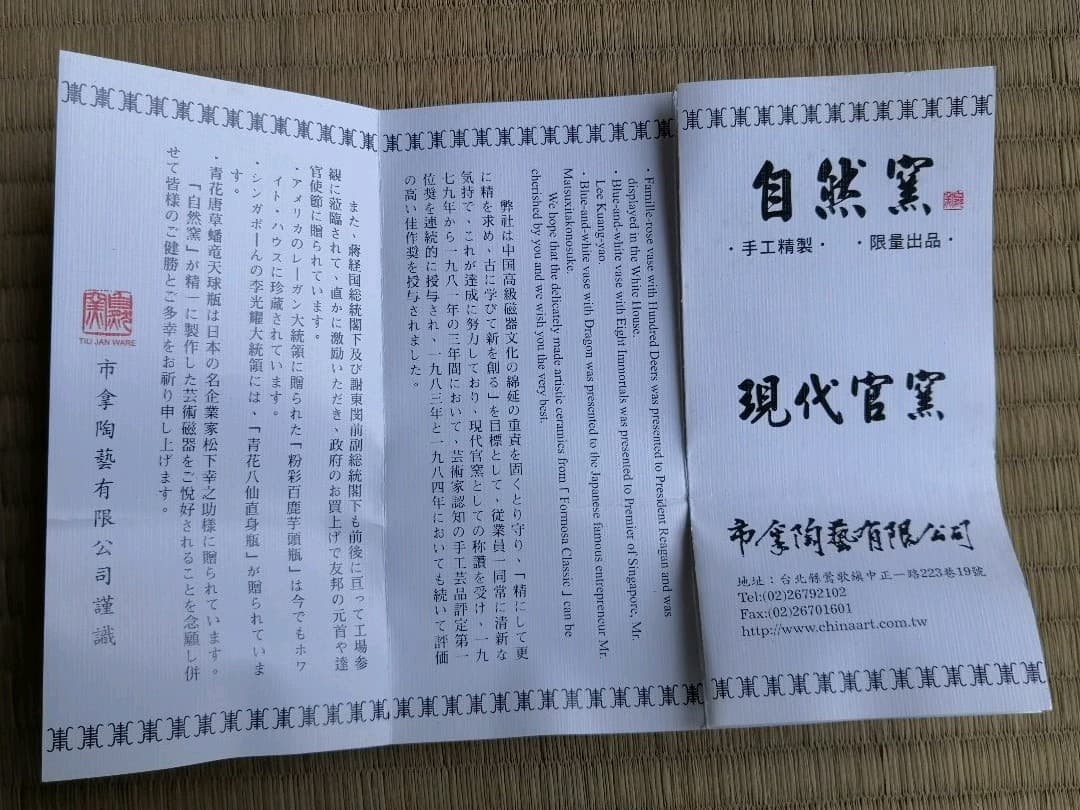 自然窑
・手工精製・ ・限量出品・
現代官窯
市拿陶藝有限公司
地址：台北縣鶯歌鎮中正一路223巷19號
Tel:(02)26792102
Fax:(02)26701601
http://www.chinaart.com.tw
・Famille-rose vase with Hundred Deers was presented to President Reagan and was
displayed in the White House.
・Blue-and-white vase with Eight Immortals was presented to Premier of Singapore, Mr.
Lee Kuang-yao.
・Blue-and-white vase with Dragon was presented to the Japanese famous entrepreneur Mr.
Matsuxitakonosuke.
We hope that the delicately made artistic ceramics from「Formosa Classic」can be
cherished by you and we wish you the very best.
弊社は中国高級磁器文化の綿延の重責を固くとり守り、「精にして更
に精を求め、古に学びて新を創る」を目標として、従業員一同常に清新な
気持で、これが達成に努力しており、現代官窯としての称讚を受け、一九
七九年から一九八一年の三年間において、芸術家認知の手工芸品評定第一
位奨を連続的に授与され、一九八三年と一九八四年においても続いて評価
の高い佳作奨を授与されました。
また、蔣経国総統閣下及び謝東閔前副総統閣下も前後に亘って工場参
観に蒞臨されて、直かに激励いただき、政府のお買上げで友邦の元首や達
官使節に贈られています。
・アメリカのレーガン大統領に贈られた「粉彩百鹿芋頭瓶」は今でもホワ
イト・ハウスに珍蔵されています。
・シンガポーんの李光耀大統領には、「青花八仙直身瓶」が贈られていま
す。
・青花唐草蟠竜天球瓶は日本の名企業家松下幸之助様に贈られています。
「自然窯」が精一に製作した芸術磁器をご悦好されることを念願し併
せて皆様のご健勝とご多幸をお祈り申し上げます。
TIU JAN WARE
市拿陶藝有限公司謹識